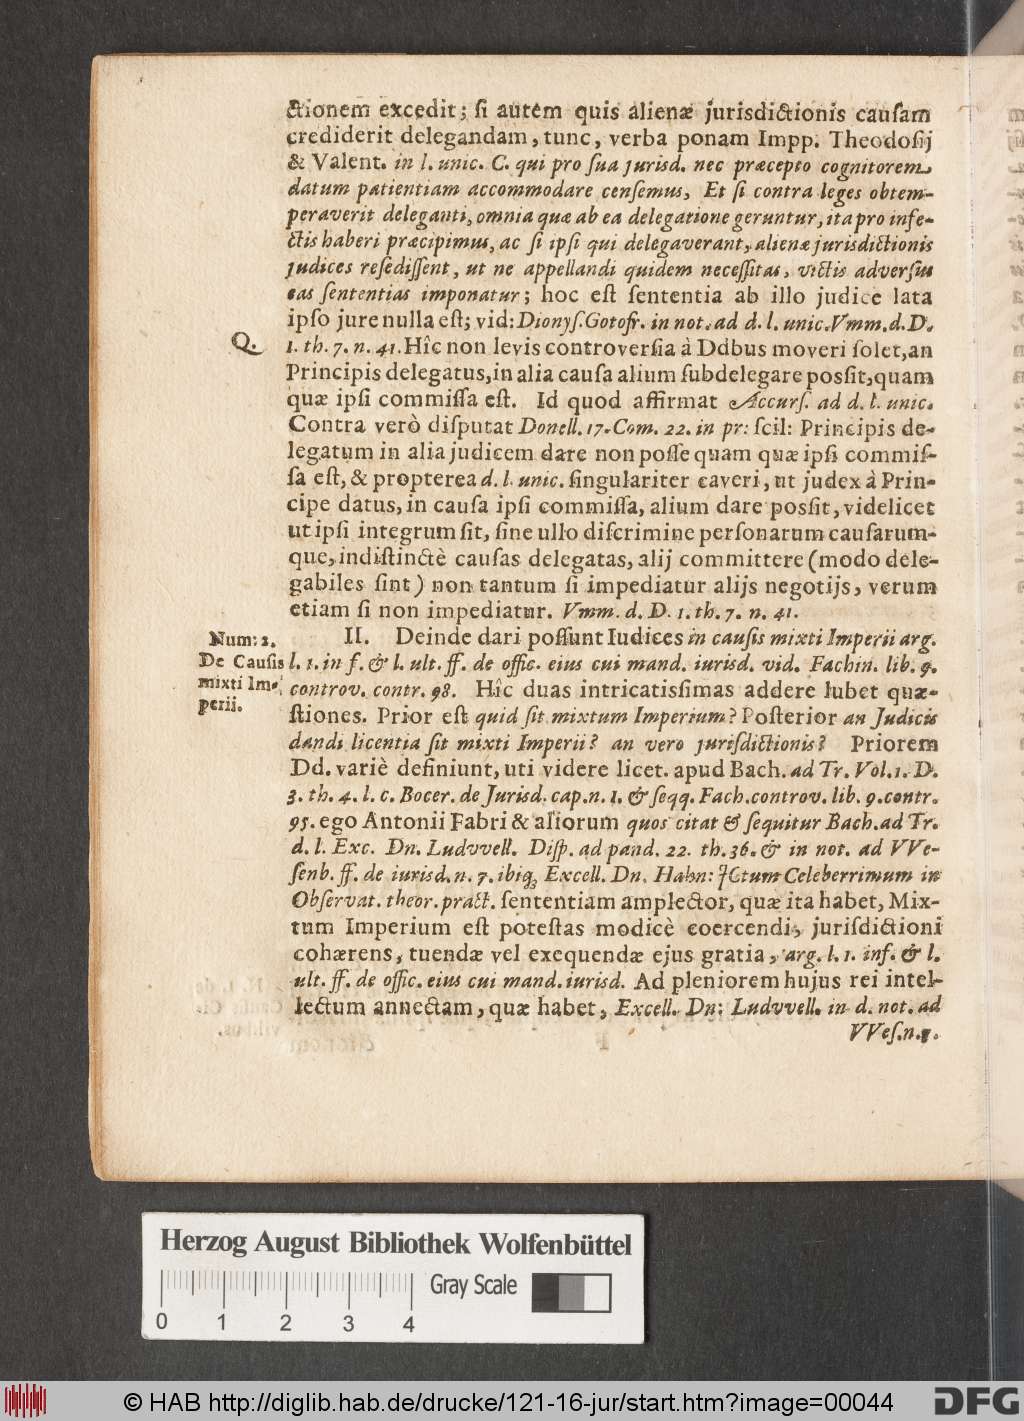 ctionem excedit; ſi autem quis alienæ jurisdictionis cauſam
crediderit delegandam, tunc, verba ponam Impp. Theodoſij
& Valent. in l. unic. C. qui pro ſua jurisd. nec præcepto cognitorem
datum patientiam accommodare cenſemus, Et ſi contra leges obtem-
peraverit deleganti, omnia quæ ab ea delegatione geruntur, ita pro infe-
ctis haberi præcipimus, ac ſi ipſi qui delegaverant, alienæ jurisdictionis
judices reſediſſent, ut ne appellandi quidem neceſſitas, victis adverſus
eas ſententias imponatur; hoc eſt ſententia ab illo judice lata
ipſo jure nulla eſt; vid: Dionyſ. Gotofr. in not. ad d. l. unic. Vmm. d. D.
Q. 1. th. 7. n. 41. Hîc non levis controverſia à Ddbus moveri ſolet, an
Principis delegatus, in alia cauſa alium ſubdelegare poſſit, quam
quæ ipſi commiſſa eſt. Id quod affirmat Accurſ. ad d. l. unic.
Contra verò diſputat Donell. 17. Com. 22. in pr: ſcil: Principis de-
legatum in alia judicem dare non poſſe quam quæ ipſi commiſ-
ſa eſt, & propterea d. l. unic. ſingulariter caveri, ut judex à Prin-
cipe datus, in cauſa ipſi commiſſa, alium dare possit, videlicet
ut ipſi integrum ſit, ſine ullo diſcrimine perſonarum cauſarum-
que, indiſtinctè cauſas delegatas, alij committere (modo dele-
gabiles ſint) non tantum ſi impediatur alijs negotijs, verum
etiam ſi non impediatur. Vmm. d. D. 1. th. 7. n. 41.
Num: 2.
De Cauſis
mixti Im-
perij.
II. Deinde dari poſſunt Iudices in cauſis mixti Imperii arg.
l. 1. in f. & l. ult. ff. de offic. eius cui mand. iurisd. vid. Fachin. lib. 9.
controv. contr. 98. Hîc duas intricatisſimas addere lubet quæ-
ſtiones. Prior eſt quid ſit mixtum Imperium? Poſterior an Judicis
dandi licentia ſit mixti Imperii? an vero jurisdictionis? Priorem
Dd. variè definiunt, uti videre licet. apud Bach. ad Tr. Vol. 1. D.
3. th. 4. l. c. Bocer. de Jurisd. cap. n. 1. & ſeqq. Fach. controv. lib. 9. contr.
95. ego Antonii Fabri & aliorum quos citat & ſequitur Bach. ad Tr.
d. l. Exc. Dn. Ludvvell. Diſp. ad pand. 22. th. 36. & in not. ad VVe-
ſenb. ff. de iurisd. n. 7. ibiq; Excell. Dn. Hahn: JCtum Celeberrimum in
Obſervat. theor. pract. ſententiam amplector, quæ ita habet, Mix-
tum Imperium eſt poteſtas modicè coercendi, jurisdictioni
cohærens, tuendæ vel exequendæ ejus gratia, arg. l. 1. inf. & l.
ult. ff. de offic. eius cui mand. iurisd. Ad pleniorem hujus rei intel-
lectum annectam, quæ habet, Excell. Dn: Ludvvell. in d. not. ad
VVeſ. n. 7.
Herzog August Bibliothek Wolfenbüttel
Gray Scale
0 1 2 3 4
© HAB http://diglib.hab.de/drucke/121-16-jur/start.htm?image=00044
DFG